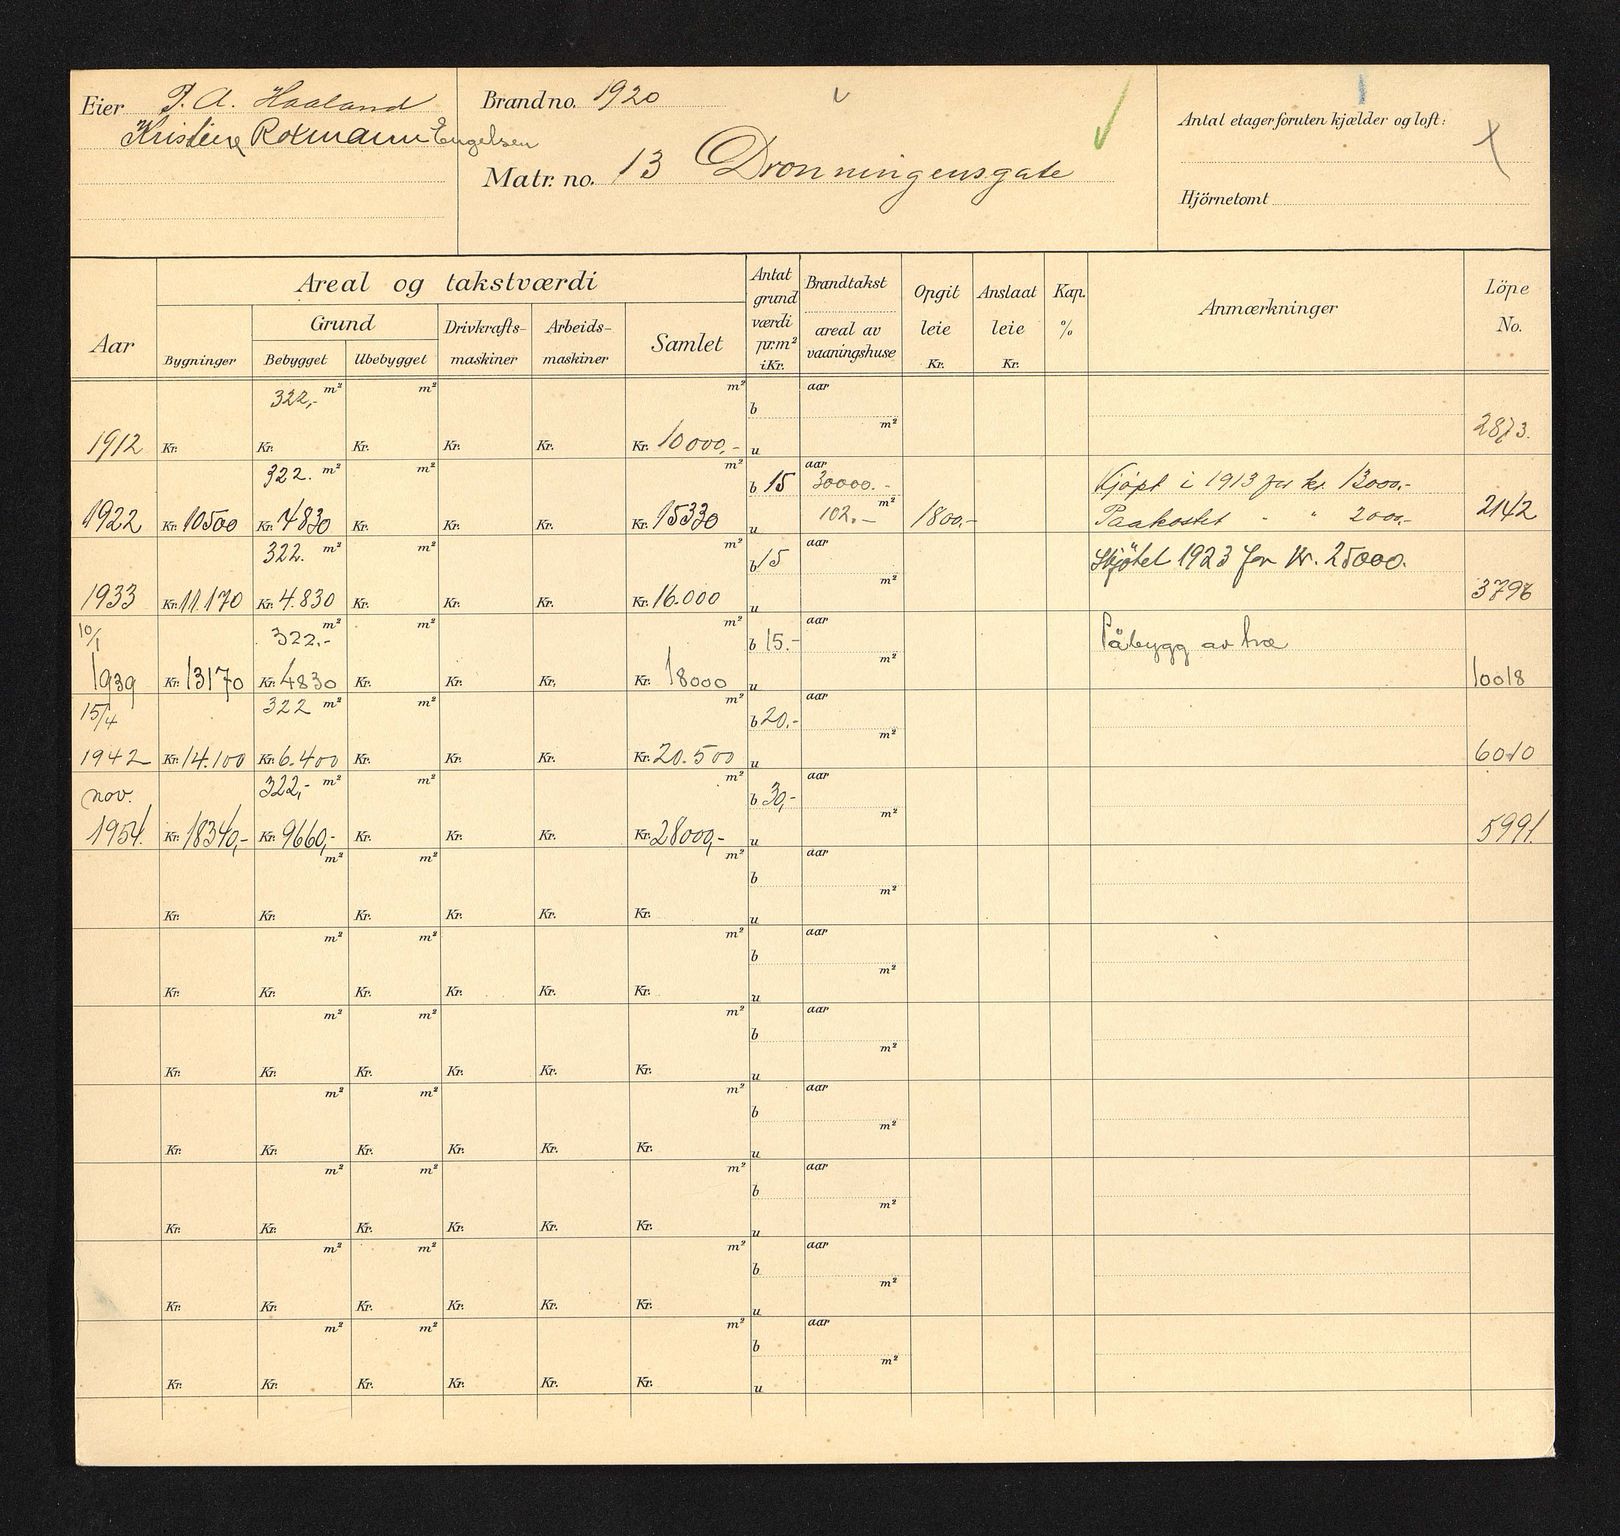 Eier P. A. Haaland
Kristine Rotmann Engelsen
Brand no. 1920
Matr. no. 13 Dronningensgate
Antal etager foruten kjælder og loft:
Hjörnetomt
Aar
Areal og takstværdi
Bygninger
Grund
Bebygget
Ubebygget
Drivkrafts-
maskiner
Arbeids-
maskiner
Samlet
Antat
grund
værdi
pr. m²
i Kr.
Brandtakst
areal av
vaaningshuse
Opgit
leie
Kr.
Anslaat
leie
Kr.
Kap.
%
Anmærkninger
Löpe
No.
322,- m² m² m² aar
b
m²
1912 Kr. Kr. Kr. Kr. Kr. Kr. 10000,- u 2873.
322. m² m² m² aar
b 15 30000.- Kjöpt i 1913 for kr. 13000,-
m²
1922 Kr. 10500 Kr. 4830 Kr. Kr. Kr. Kr. 15330 u 102.- 1800,- Paakostet - " 2000,- 2142
322. m² m² m² aar
b 15 Skjötel 1923 for Kr. 25000.
m²
1933 Kr. 11.170 Kr. 4.830 Kr. Kr. Kr. Kr. 16.000 u 3796
10/1 322.- m² m² m² aar
b 15.- Påbygg av tre
m²
1939 Kr. 13170 Kr. 4830 Kr. Kr. Kr. Kr. 18000 u 10018
15/4 322 m² m² m² aar
b 20,-
m²
1942 Kr. 14.100 Kr. 6.400 Kr. Kr. Kr. Kr. 20.500 u 6010
nov. 322,- m² m² m² aar
b 30,-
m²
1954. Kr. 18340,- Kr. 9660,- Kr. Kr. Kr. Kr. 28000,- u 5991.
m² m² m² aar
b
m²
Kr. Kr. Kr. Kr. Kr. Kr. u
m² m² m² aar
b
m²
Kr. Kr. Kr. Kr. Kr. Kr. u
m² m² m² aar
b
m²
Kr. Kr. Kr. Kr. Kr. Kr. u
m² m² m² aar
b
m²
Kr. Kr. Kr. Kr. Kr. Kr. u
m² m² m² aar
b
m²
Kr. Kr. Kr. Kr. Kr. Kr. u
m² m² m² aar
b
m²
Kr. Kr. Kr. Kr. Kr. Kr. u
m² m² m² aar
b
m²
Kr. Kr. Kr. Kr. Kr. Kr. u